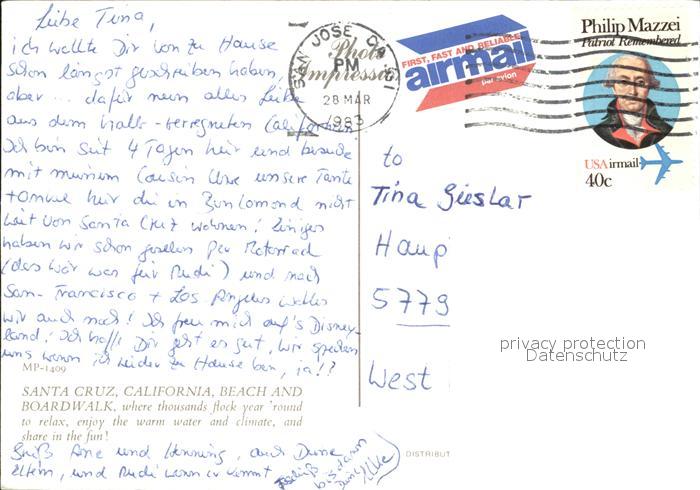 Liebe Tina,
ich wollte Dir von zu Hause
schon längst geschrieben haben,
aber ... dafür nun alles Liebe
aus dem kalt-verregneten Californien
Ich bin seit 4 Tagen hier und besuche
mit meinem Cousin Uwe unsere Tante
+ Onkel hier die in Benlomond nicht
weit von Santa Cruz wohnen! Einiges
haben wir schon gesehen per Motorrad
(das wär was für Rudi) und nach
San-Francisco + Los Angeles wollen
wir auch noch! Ich freu mich auf's Disney-
land! Ich hoffe Dir geht es gut, wir sprechen
uns wenn ich wieder zu Hause bin, ja!?
MP-1409
SANTA CRUZ, CALIFORNIA, BEACH AND
BOARDWALK, where thousands flock year 'round
to relax, enjoy the warm water and climate, and
share in the fun!
Grüß Ane und Henning, auch Deine
Eltern, und Rudi wenn er kommt
bis dann
Deine
Photo
Impressi
SAN JOSE CA
PM
28 MAR
1983
FIRST, FAST AND RELIABLE
airmail
par avion
Philip Mazzei
Patriot Remembered
USAirmail
40c
to
Tina Gieslar
Haup
5779
West
privacy protection
Datenschutz
DISTRIBUT